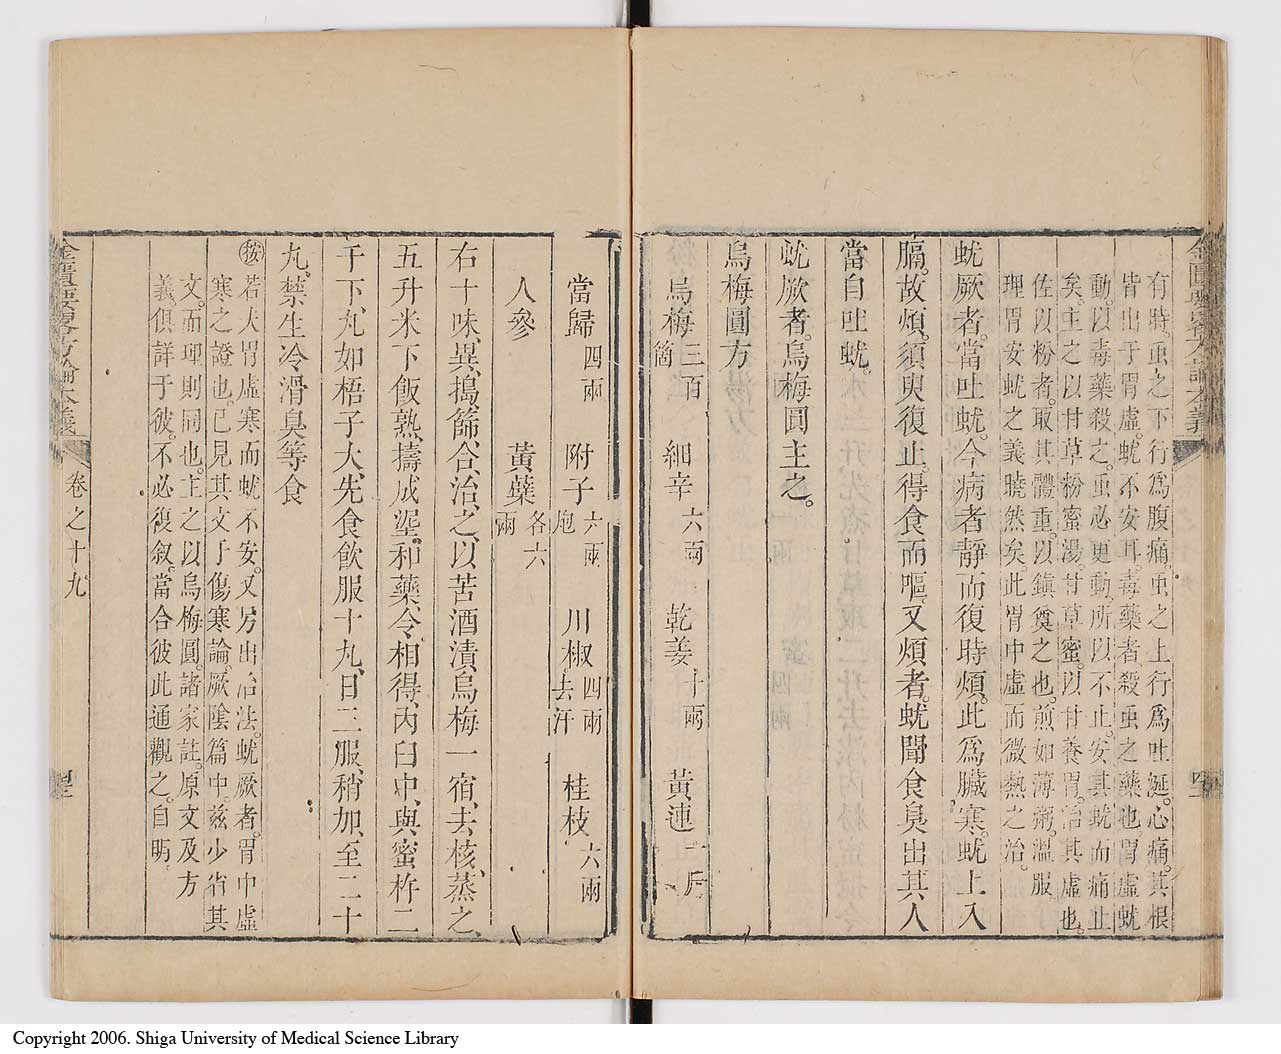 有時。虫之下行爲腹痛。虫之上行爲吐涎。心痛。其根
皆出于胃虛。蚘不安耳。毒藥者。殺虫之藥也。胃虛蚘
動。以毒藥殺之。虫必更動。所以不止。安其蚘而痛止
矣。主之以甘草粉蜜湯。甘草蜜。以甘養胃。治其虛也。
佐以粉者。取其體重。以鎮奠之也。煎如薄粥。溫服。
理胃安蚘之義曉然矣。此胃中虛而微熱之治。
蚘厥者。當吐蚘。今病者靜而復時煩。此爲臟寒。蚘上入
膈。故煩。須臾復止。得食而嘔。又煩者。蚘聞食臭出。其人
當自吐蚘。
蚘厥者。烏梅圓主之。
烏梅圓方
烏梅三百箇 細辛六兩 乾姜十兩 黃連一斤
當歸四兩 附子六兩炮 川椒四兩去汗 桂枝六兩
人參 黃蘗各六兩
右十味。異搗篩。合治之。以苦酒漬烏梅一宿。去核。蒸之。
五升米下。飯熟。擣成泥。和藥。令相得。內臼中。與蜜杵二
千下。丸如梧子大。先食飲服十丸。日三服。稍加至二十
丸。禁生冷滑臭等食
按若夫胃虛寒而蚘不安。又另出治法。蚘厥者。胃中虛
寒之證也。已見其文于傷寒論厥陰篇中。茲少省其
文。而理則同也。主之以烏梅圓。諸家註原文及方
義。俱詳于彼。不必復敘。當合彼此通觀之。自明。
金匱要畧方論本義 卷之十九
Copyright 2006. Shiga University of Medical Science Library